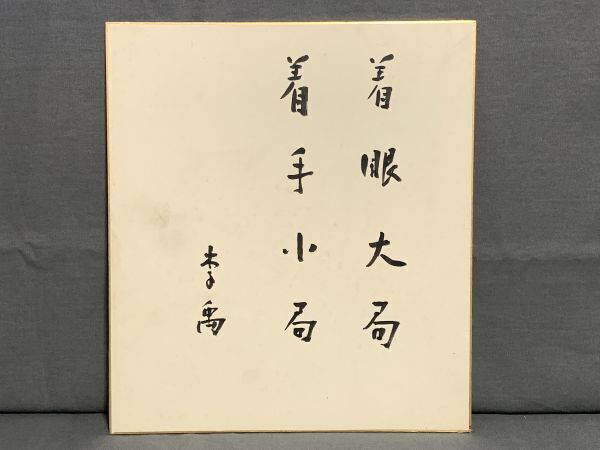 着眼大局
着手小局
李禹